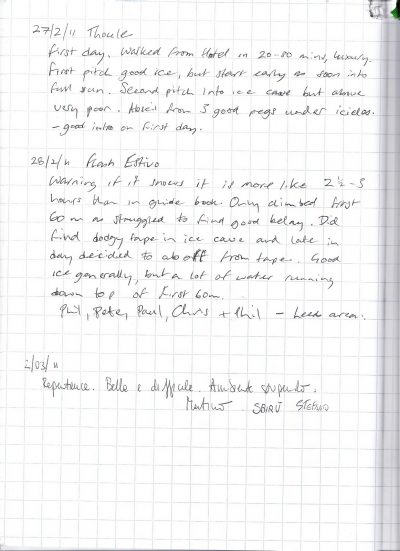 27/2/11 Thoule
First day. Walked from Hotel in 20-30 mins, luxury.
First pitch good ice, but start early as soon into
full sun. Second pitch into ice cave but above
very poor. Abseil from 3 good pegs under icicles.
- good intro on first day.
28/2/11 Flash Estivo
Warning if it snows it is more like 2½-3
hours than in guide book. Only climbed first
60m as struggled to find good belay. Did
find dodgy tape in ice cave and late in
day decided to ab off from tape. Good
ice generally, but a lot of water running
down top of first 60m.
Phil, Pete, Paul, Chris + Phil - Leed area.
2/03/11
Repentance. Bella e difficile. Ambiente stupendo.
SBIRÙ STEFANO